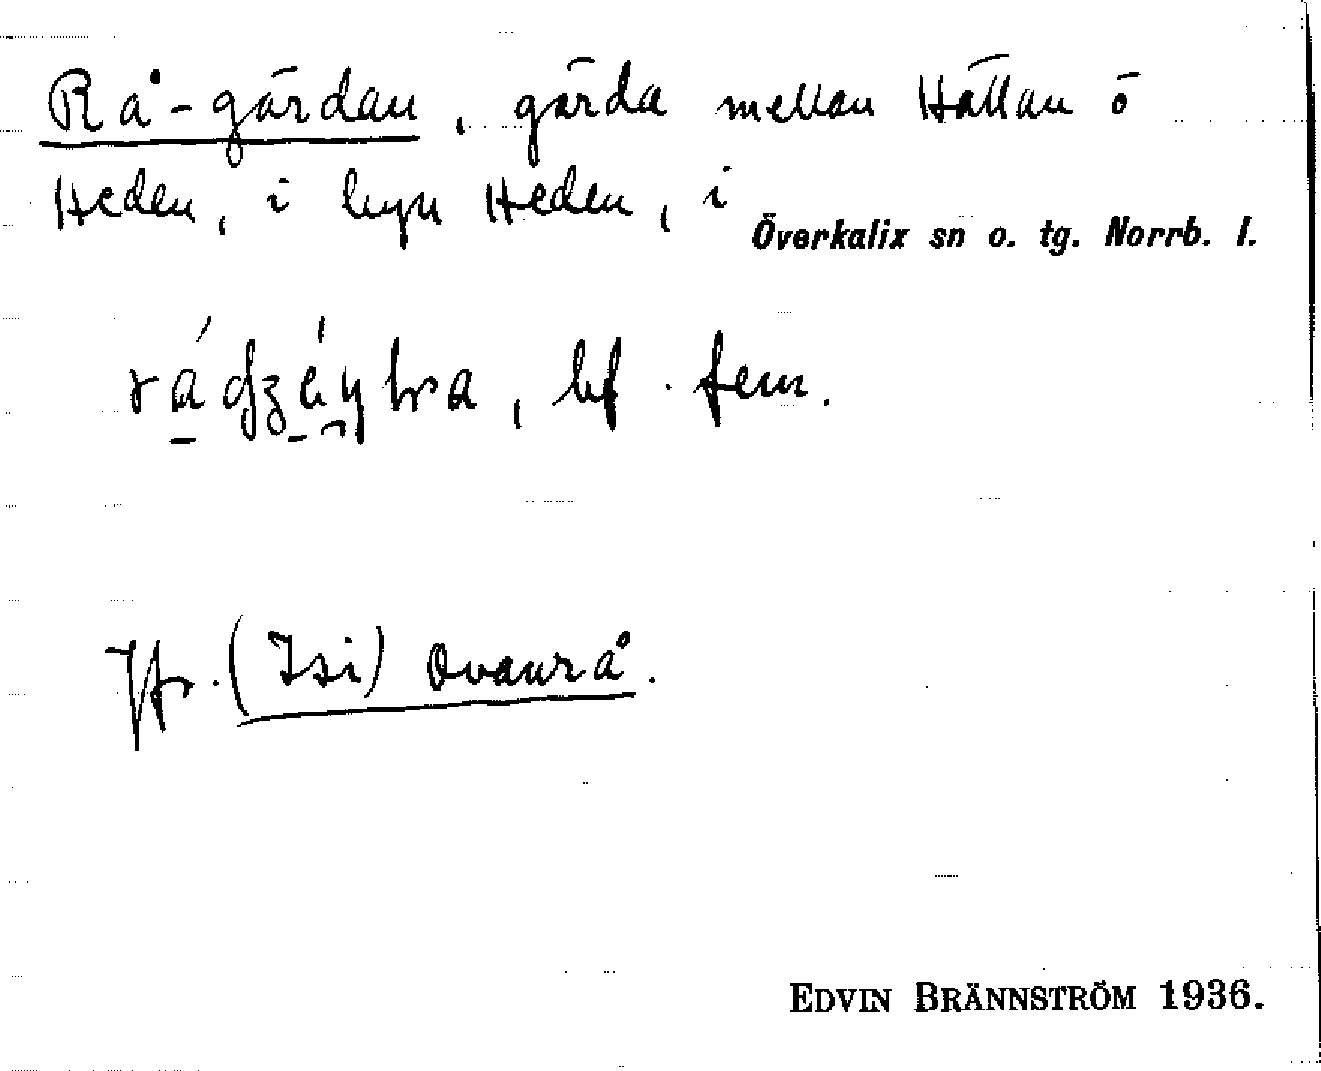 Rå-gärdan, gärda mellan Hällan ö
Heden, i byn Heden, i
Överkalix sn o. tg. Norrb. l.
bf. fem.
Jfr. (Isi) Ovanrå.
EDVIN BRÄNNSTRÖM 1936.